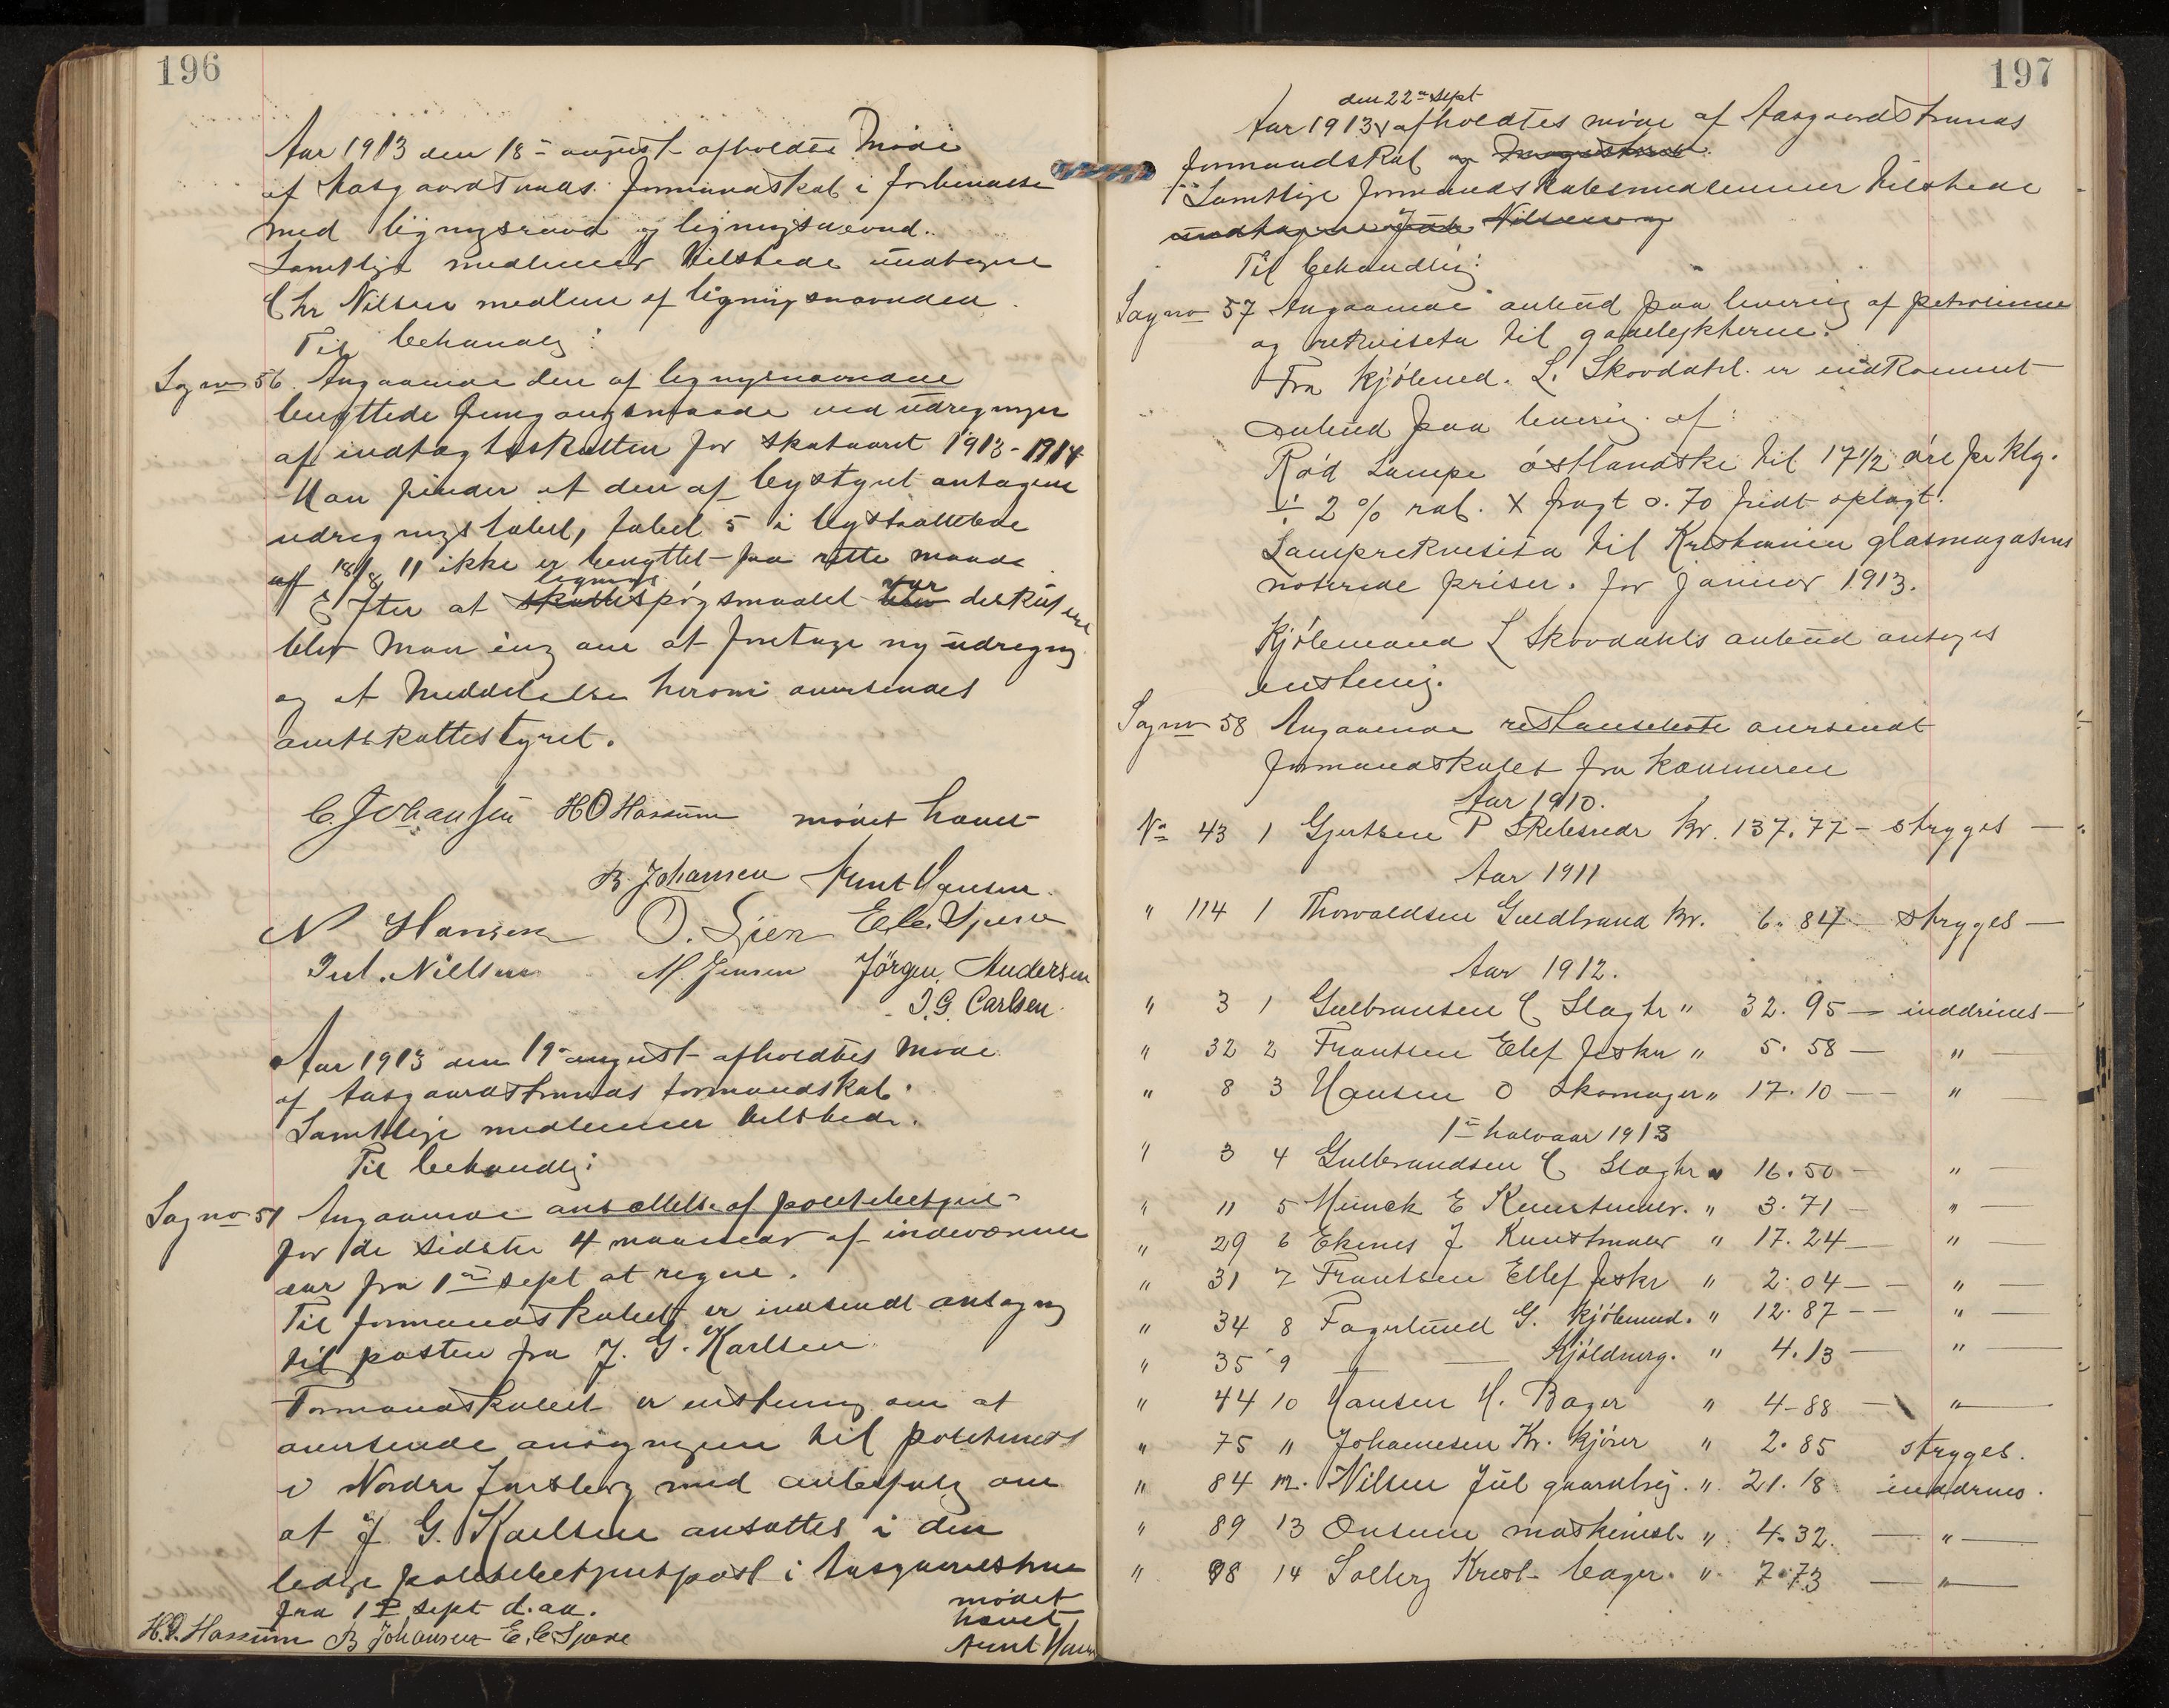 196
Aar 1913 den 18de august afholdtes Møde
af Aasgaardstrands formandskab i forbindelse
med ligningsraad og ligningsnævnd.
Samtlige medlemer tilstede undtagen
Chr Nilsen medlem af ligningsnævnden.
Til behandlg:
Sag no 56. Angaaende den af ligningsnævndene
benyttede fremgangsmaade ved udregningen
af indtægtsskatten for skataaret 1913-1914
Man finder at den af bystyret antagne
udregningstabel, tabel 5 i byskatteloven
af 18/8 11 ikke er benyttet paa rette maade.
Efter at skattespørgsmaalet lignings blev var diskuteret
blev man enig om at foretage ny udregng
og at Meddelelse herom oversendes
amtskattestyret.
C. Johansen HO Hassum mødet hævet
B. Johansen Arnt Hansen.
N Hansen O. Lien E. C. Gjerse
Jul. Nillsen M. Jensen Jörgen Andersen
J. G. Carlsen.
Aar 1913 den 19de august afholdtes Møde
af Aasgaardstrands formandskab.
Samtlige medlemmer tilstede.
Til behandlg:
Sag no 51 Angaaende ansættelse af politibetjent
for de sidste 4 maaneder af indeværende
aar fra 1ste sept at regne.
Til formandskabet er indsendt ansøgng
til posten fra J. G. Karlsen
Formandskabet er enstemig om at
oversende ansøgningen til politimest
i Nordre Jarlsberg med anbefalg om
at J. G. Karlsen ansættes i den
ledige politibetjentpost i Aasgaardstrand
fra 1ste sept d. aa. mødet
hævet
H.O. Hassum B Johansen E. C. Gjerse Arnt Hansen
197
den 22de sept
Aar 1913 v afholdtes møde af Aasgaardstrands
formandskab og Magistrat.
Samtlige formandskabsmedlemmer tilstede
undtagen Jul Nilsen og
Til behandling:
Sag no 57 Angaaende anbud paa levering af petroleum
og rekvisita til gadelygterne.
Fra kjøbmd. L. Skovdahl er indkommet
Anbud paa leverig af:
Rød Lampe østlandske til 17 1/2 øre pr klg.
÷ 2 % rab. X fragt o. 70 fridt oplagt.
Lamperekvisita til Kristiania glasmagasins
noterede priser for januar 1913.
Kjøbmand L Skovdahls anbud antages
enstemig.
Sag no 58 Angaaende restanseliste oversendt
formandskabet fra kæmneren
Aar 1910.
No 43 1 Gjertsen P Skibsredr kr. 137.77 - stryges -
Aar 1911
" 114 1 Thorvaldsen Guldbrand kr. 6.84 - stryges -
Aar 1912.
" 3 1 Gulbransen C Slagtr " 32.95 - inddrives -
" 32 2 Frantsen Elef fisker " 5.58 - " -
" 8 3 Hansen O Skomager " 17.10 - - " -
1ste halvaar 1913
" 3 4 Gulbrandsen C Slagtr " 16.50 - " -
" 11 5 Munck E Kunstmaler. " 3.71 - " -
" 29 6 Ekenes J Kunstmaler " 17.24 - " -
" 31 7 Frantsen Ellef fiskr " 2.04 - - " -
" 34 8 Fagerlund G. kjøbmd. " 12.87 - - " -
" 35 9 — — Kjöldnerg. " 4.13 - " -
" 44 10 Hansen H. Bager " 4-88 - " -
" 75 11 Johannesen Kr. kjører " 2.85 stryges.
" 84 12. Nilsen Jul gaardbrg. " 21.18 inddrives.
" 89 13 Onsum maskinist. " 4.32. - " -
" 98 14 Solberg Krist. bager. " 7.73 - " -